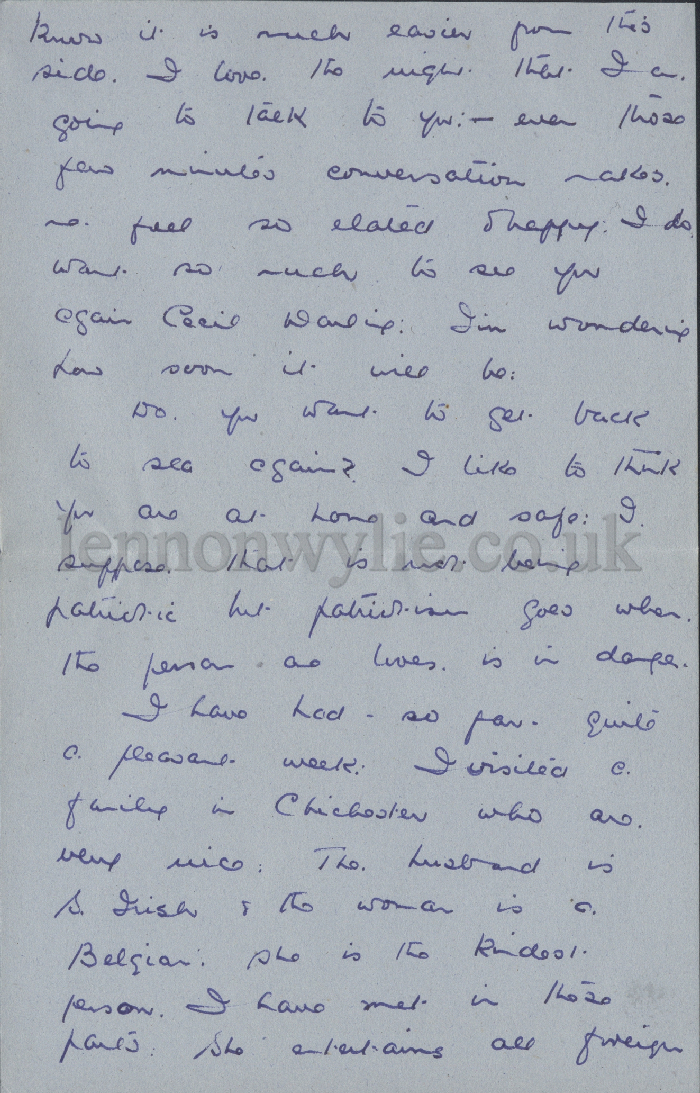 know it is much easier from this
side. I love the night that I am
going to talk to you:- even those
few minutes conversation makes
me feel so elated & happy. I do
want so much to see you
again Cecil Darling: I'm wondering
how soon it will be:
Do you want to get back
to sea again? I like to think
you are at home and safe: I
suppose that is not being
patriotic but patriotism goes when
the person one loves is in danger.
I have had - so far - quite
a pleasant week. I visited a
family in Chichester who are
very nice: The husband is
S. Irish & the woman is a
Belgian: she is the kindest
person I have met in those
parts: She entertains all foreign
lennonwylie.co.uk